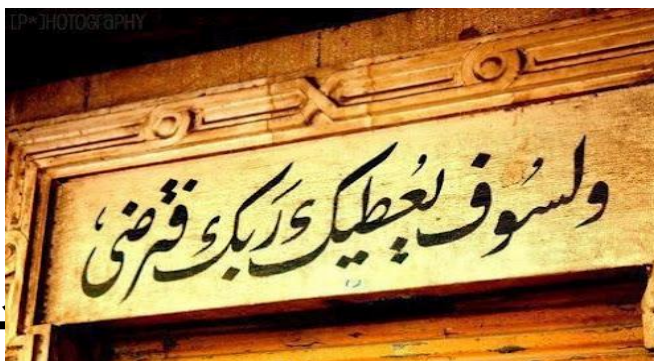 [.P*]HOTOGRAPHY
ولسوف يُعطيك رَبك فترضى